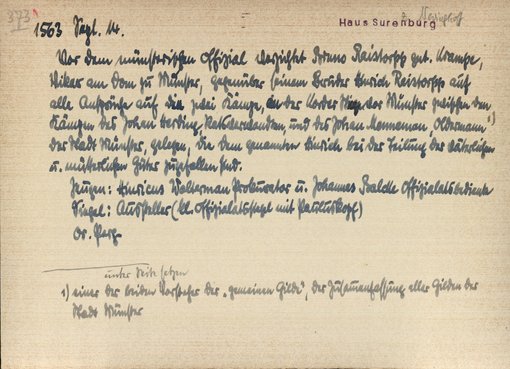 373
Haus Surenburg
1563 Sept. 14.
Vor dem münsterischen Offizial verzichtet Bruno Raistorpp gnt. Krampe,
Vikar am Dom zu Münster, gegenüber seinem Bruder Hinrich Raistorpp auf
alle Ansprüche auf die zwei Kämpe, an der Norder vor Münster zwischen den
Kämpen des Johan Herding, Ratsverwandten, und des Johan Menneman, Oldermann 1)
der Stadt Münster, gelegen, die dem genannten Hinrich bei der Teilung der väterlichen
u. mütterlichen Güter zugefallen sind.
Zeugen: Hinricus Wolterman Prokurator u. Johannes Offizialatsbediente
Siegel: Aussteller (kl. Offizialatssiegel mit Pauluskopf)
Or. Perg.
unter Seite setzen
1) einer der beiden Vorsteher der „gemeinen Gilde", der Zusammenfassung aller Gilden der
Stadt Münster